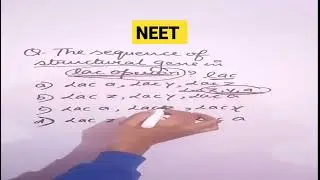 NEET
Q. The sequence of
structural gene in
lac operon? lac
a) Lac a, Lac y, Lac z
z, y, a
b) Lac z, Lac y, Lac a
c) Lac a, Lac z, Lac y
d) Lac z, a